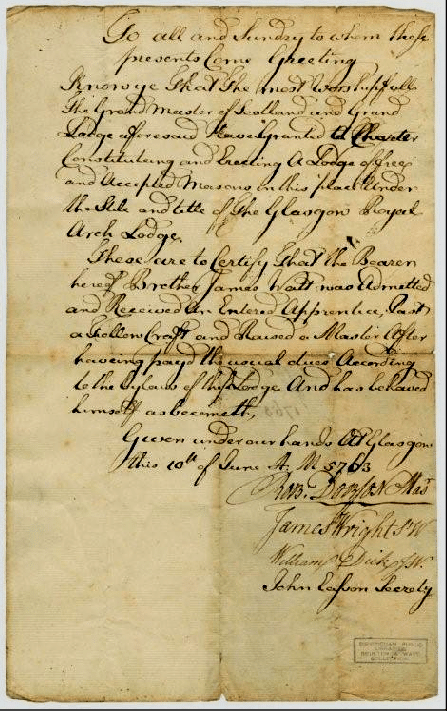 To all and Sundry to whom these
presents Come Greeting
Know ye That The most Worshipfull
The Grand Master of Scotland and Grand
Lodge aforesaid Have Granted A Charter
Constituting and Erecting A Lodge of free
and Accepted Masons in this place Under
the Stile and title of The Glasgow Royal
Arch Lodge.
These are to Certify That the Bearer
hereof Brother James Watt was Admitted
and Received An Entered Apprentice, Past
a Fellow Craft and Raised a Master After
haveing payd the usual dues According
to the bylaws of this Lodge And has behaved
himself as becometh,
Given under our hands At Glasgow
this 10th of June A. M 5763
Robt. Mas
James Wright S W
William Dick J W.
John Easson Secrety
BIRMINGHAM PUBLIC
LIBRARIES
BOULTON & WATT
COLLECTION